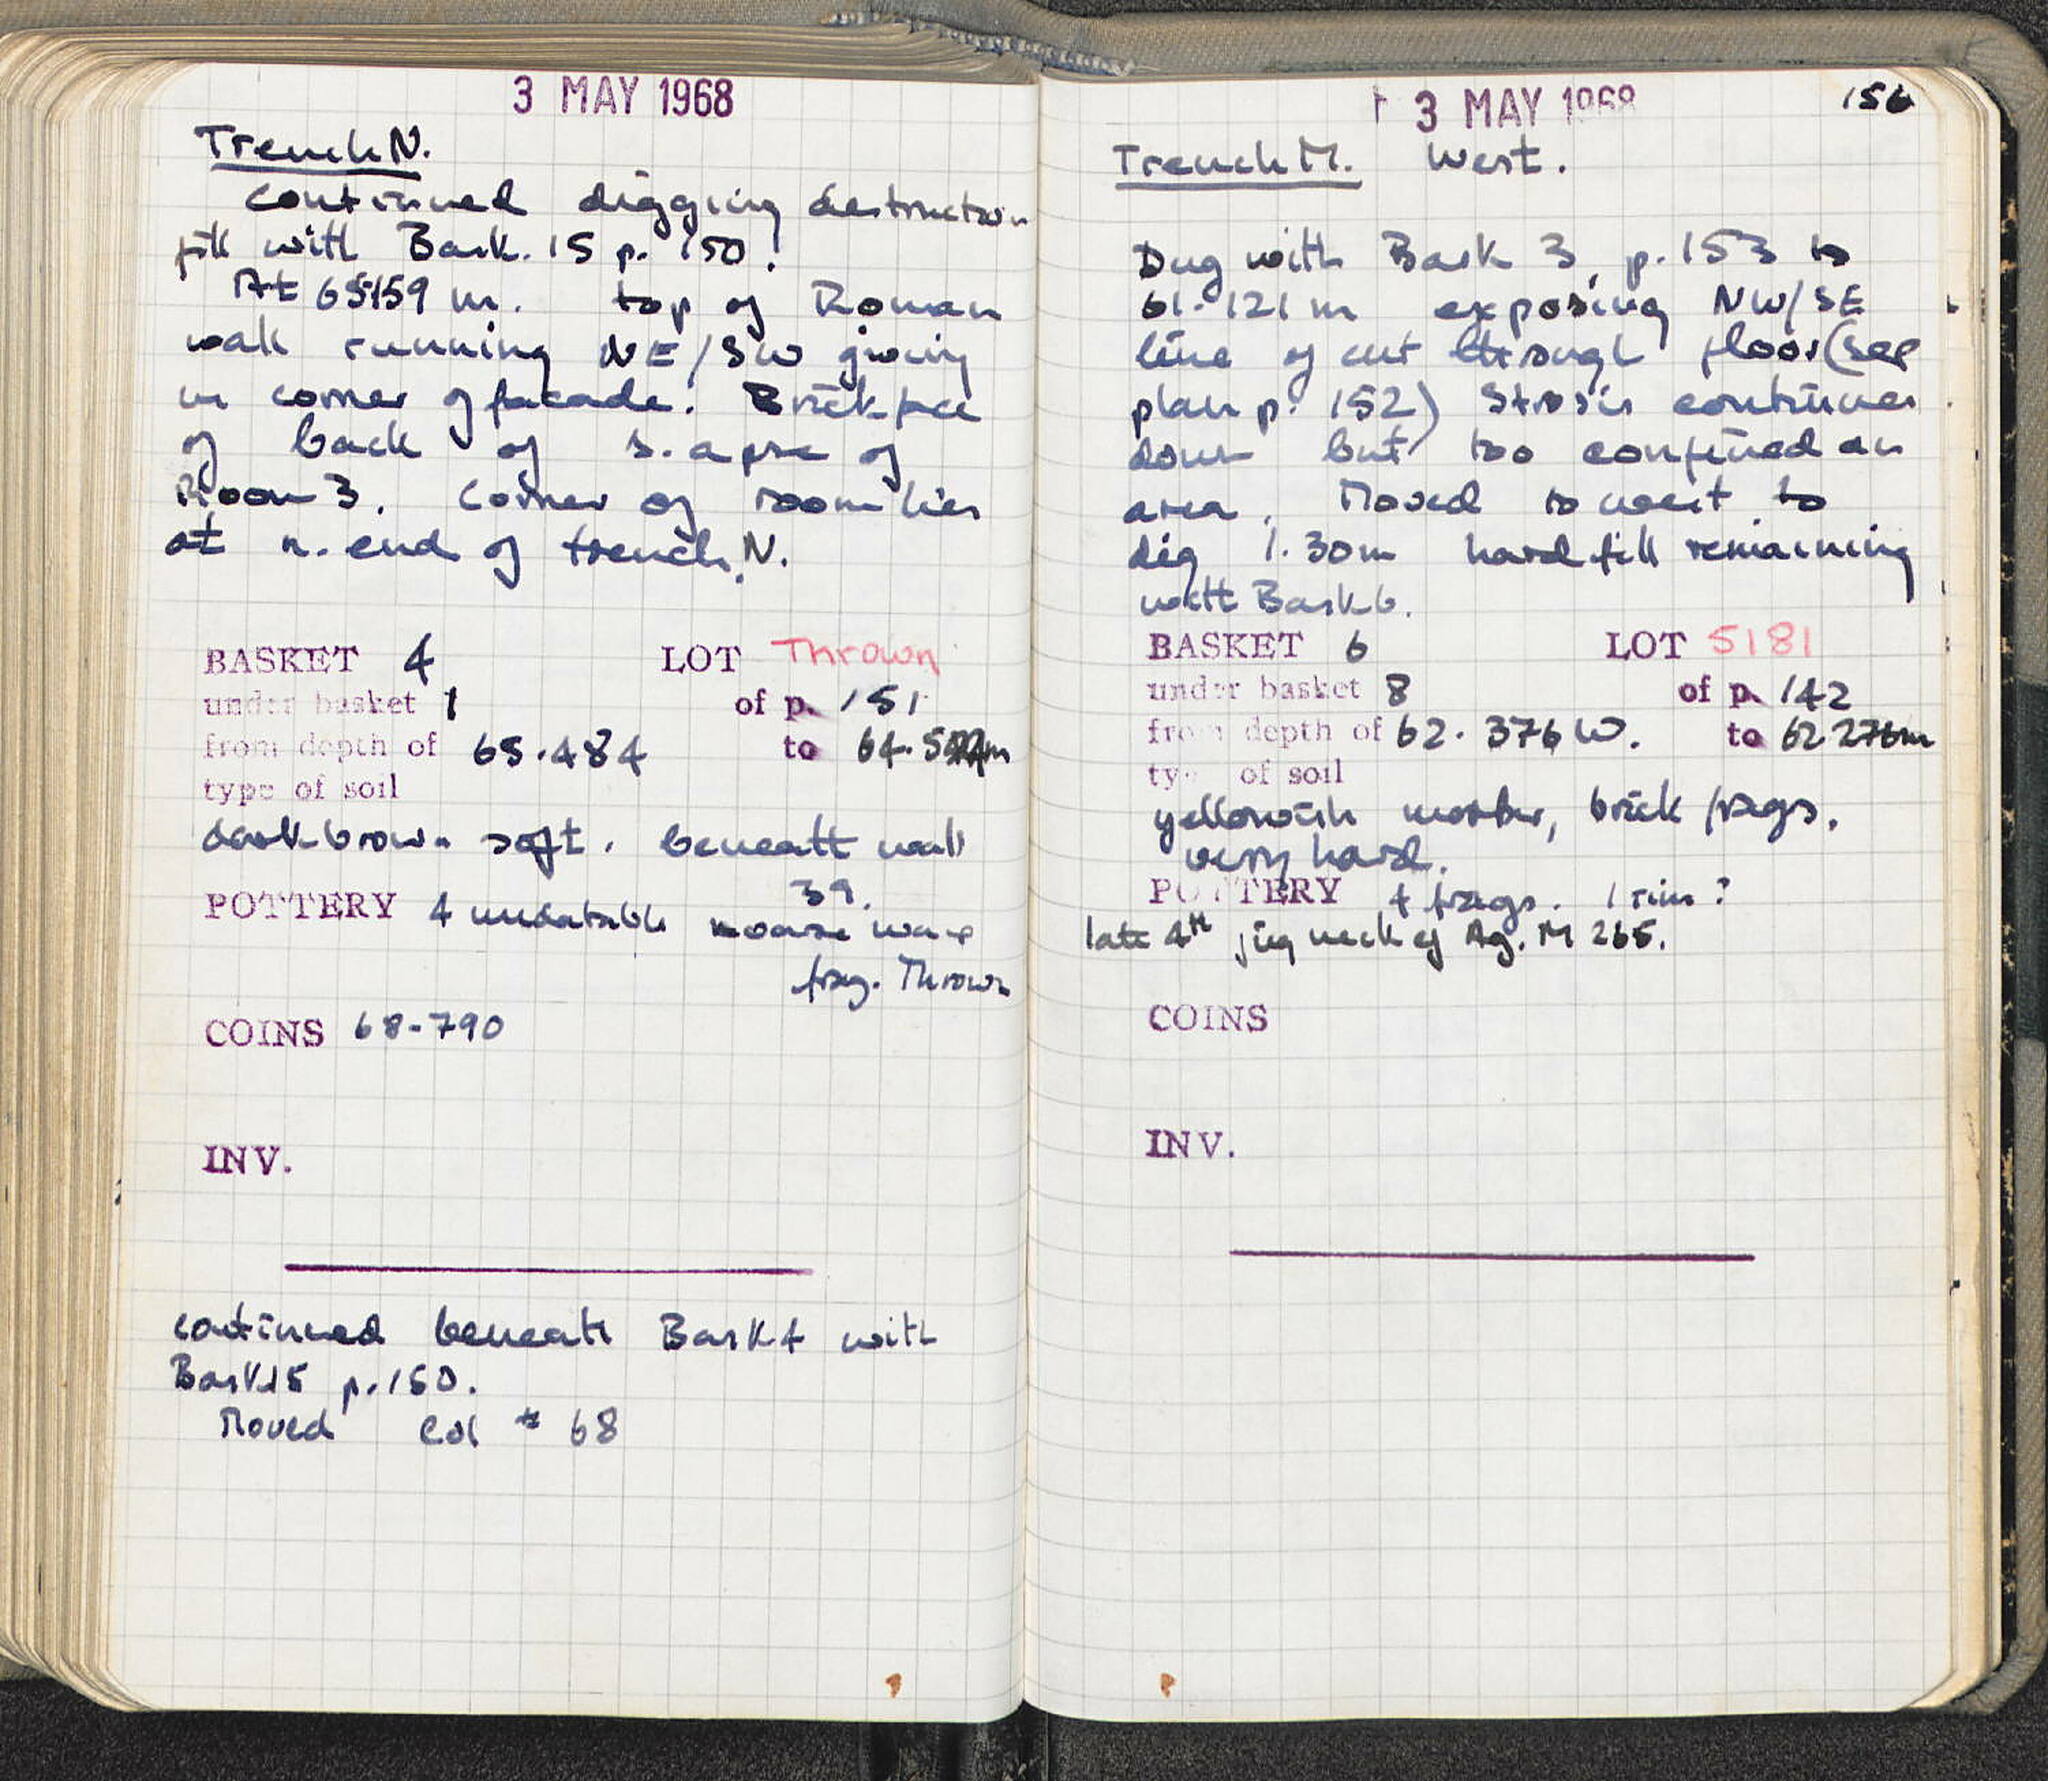 3 MAY 1968
Trench N.
continued digging destruction
fill with Bask. 15 p. 150.
At 65.159 m. top of Roman
wall running NE/SW giving
us corner of facade. Brick face
of back of s. apse of
Room 3. Corner of room lies
at n. end of trench N.
BASKET 4 LOT Thrown
under basket 1 of p. 151
from depth of 65.484 to
type of soil
dark brown soft. beneath wall
POTTERY 4 undatable coarse ware
39.
frag. Thrown
COINS 68-790
INV.
continued beneath Bask 4 with
Bask 15 p. 150.
Moved col # 68
3 MAY 1968 156
Trench M. West.
Dug with Bask 3, p. 153 to
61.121 m exposing NW/SE
line of cut through floor (see
plan p. 152) Strosis continues
down but too confined an
area. Moved to west to
dig 1.30m hard fill remaining
with Bask 6.
BASKET 6 LOT 5181
under basket 8 of p. 142
from depth of 62.376 W. to 62.276m
type of soil
yellowish mortar, brick frags.
very hard.
POTTERY 4 frags. 1 rim?
late 4th jug neck cf Ag. M 265.
COINS
INV.